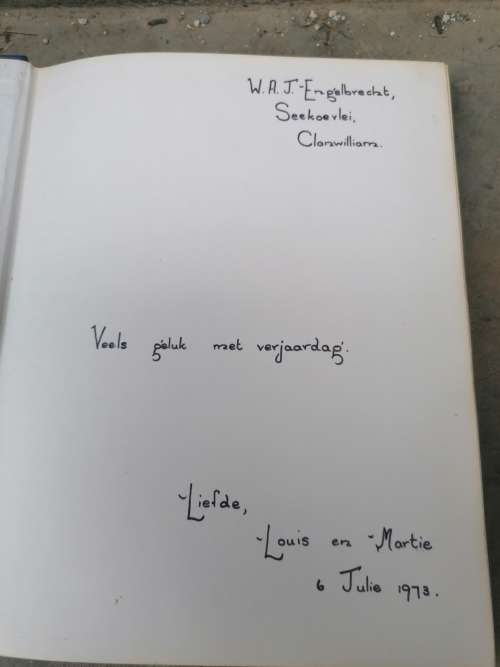 W.A.J. Engelbrecht,
Seekoevlei,
Clanwilliam.
Veels geluk met verjaardag.
Liefde,
Louis en Martie
6 Julie 1973.